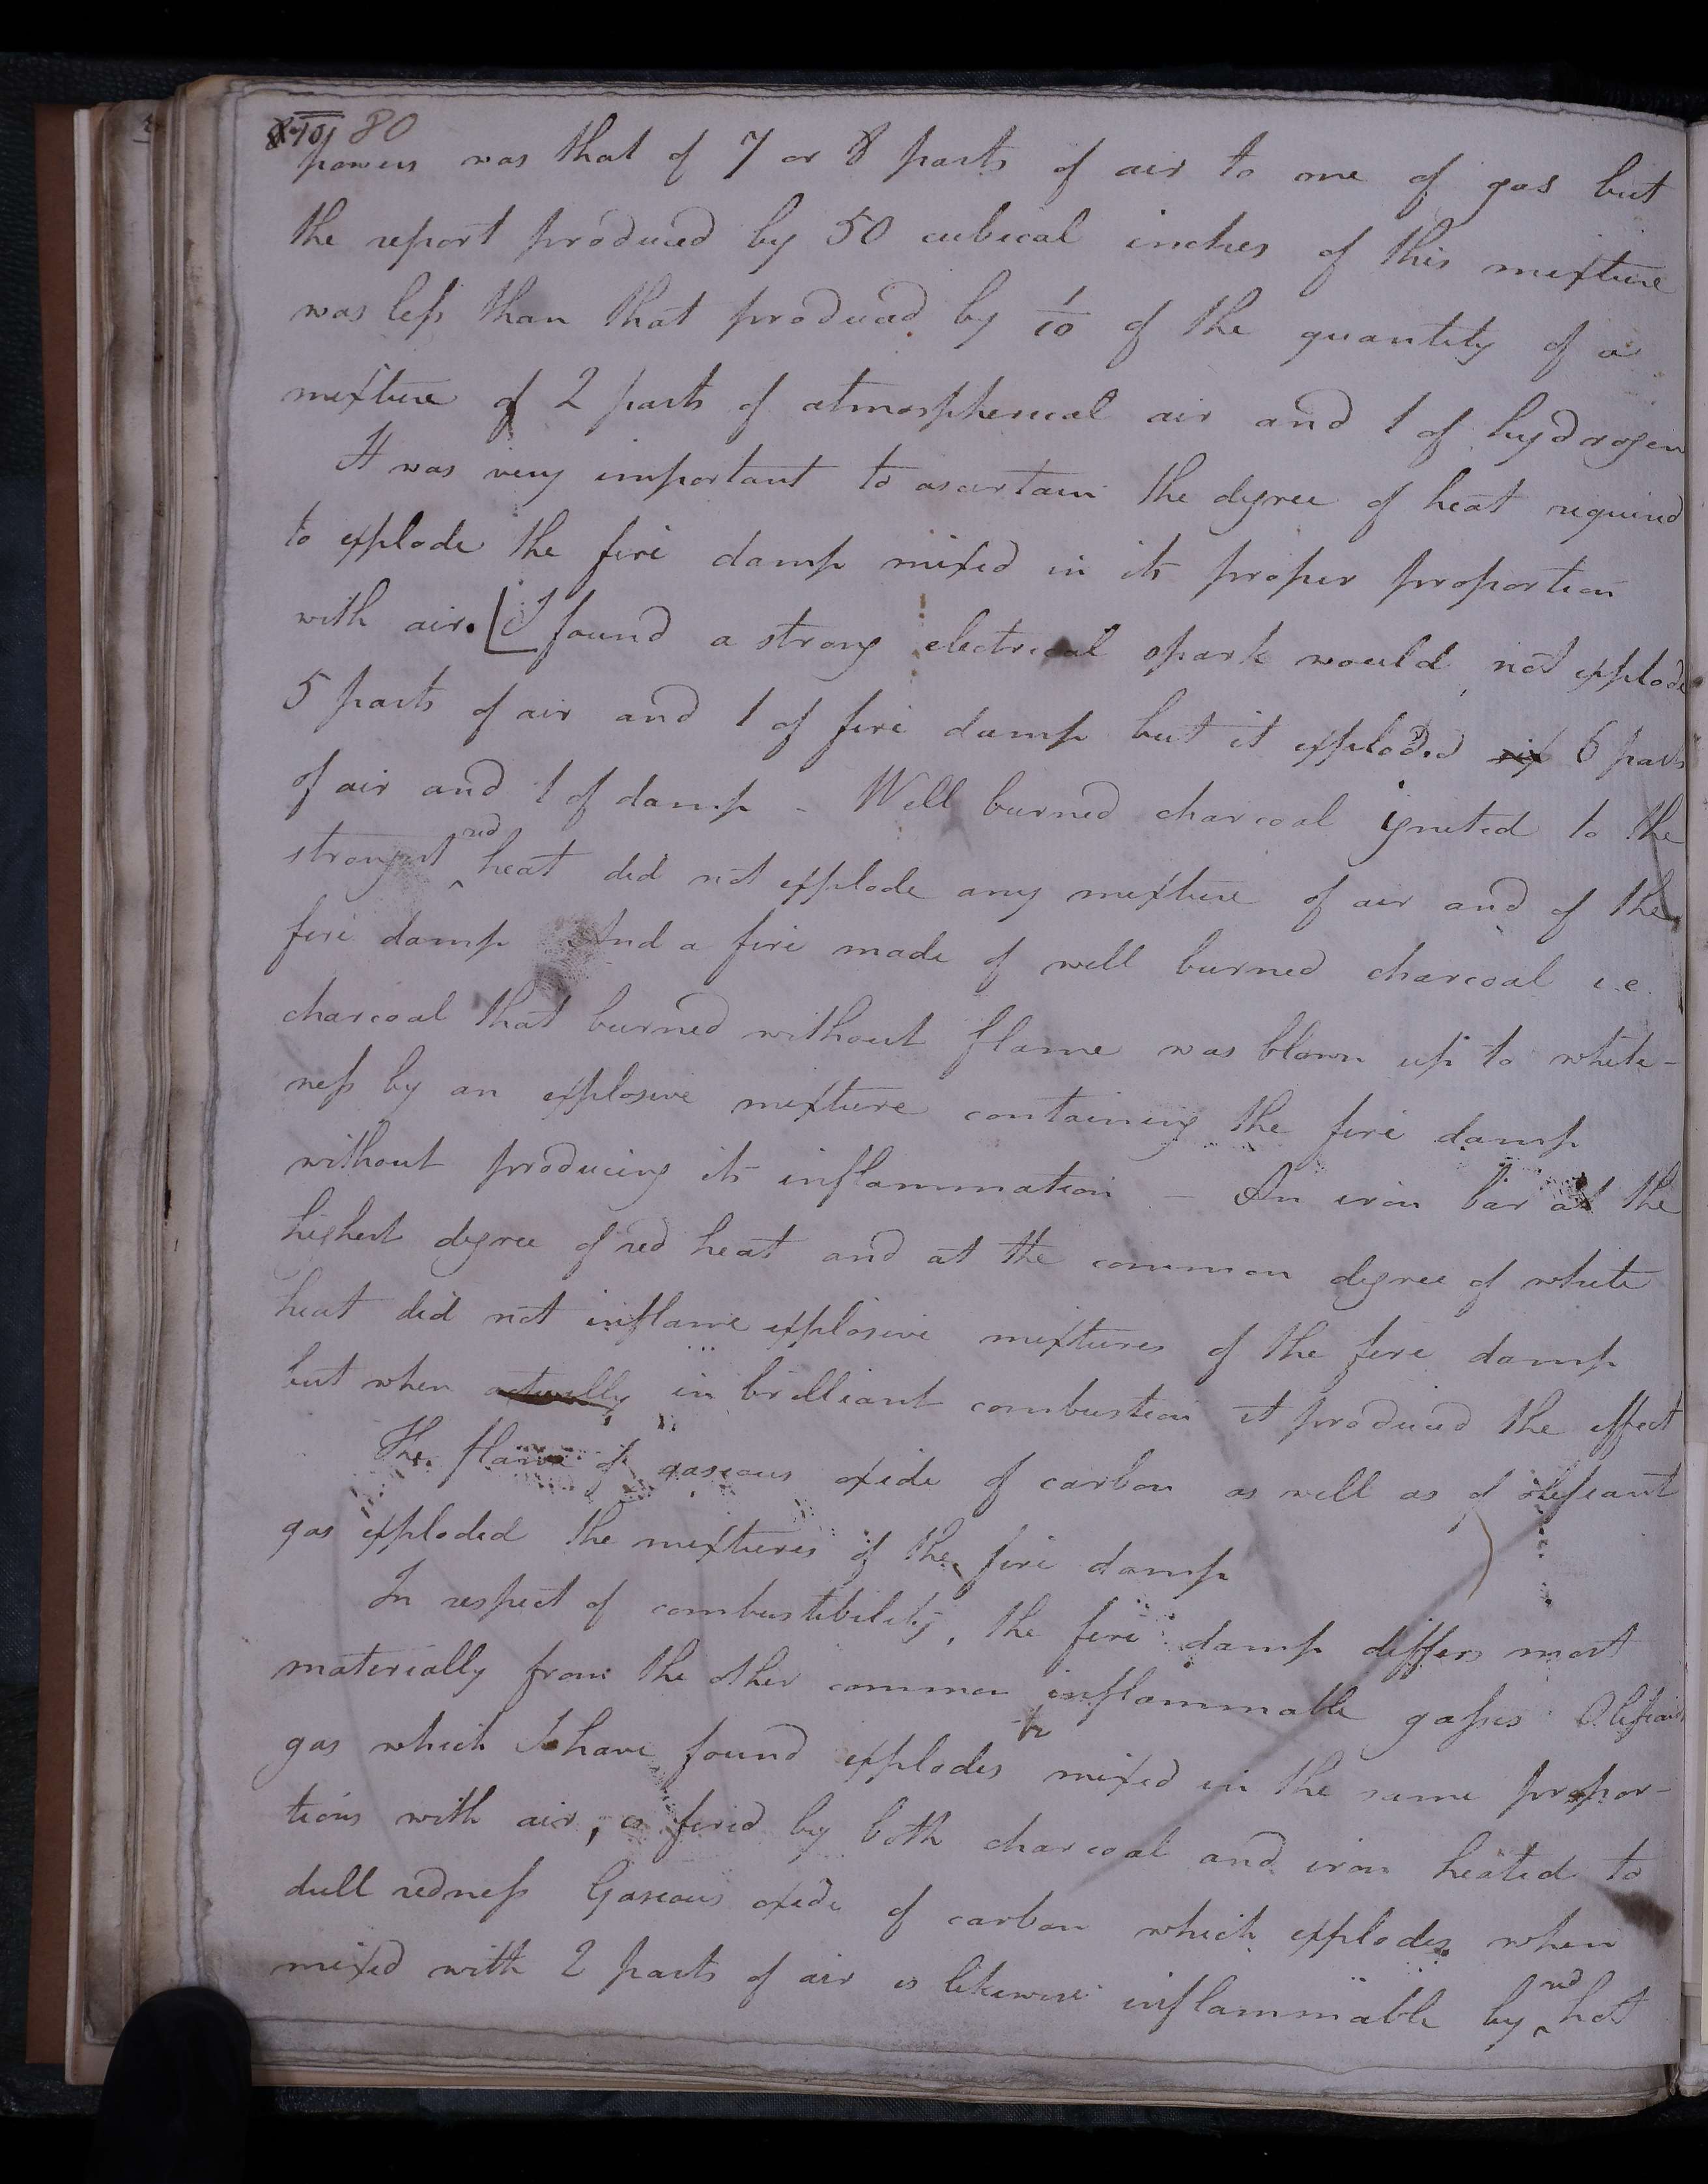 80
powers was that of 7 or 8 parts of air to one of gas but
the report produced by 50 cubical inches of this mixture
was less than that produced by 1/10 of the quantity of a
mixture of 2 parts of atmospherical air and 1 of hydrogen
It was very important to ascertain the degree of heat required
to explode the fire damp mixed in its proper proportion
with air. [I found a strong electrical spark would not explode
5 parts of air and 1 of fire damp but it exploded six 6 parts
of air and 1 of damp - Well burned charcoal ignited to the
strongest red heat did not explode any mixture of air and of the
fire damp And a fire made of well burned charcoal i.e.
charcoal that burned without flame was blown up to white-
ness by an explosive mixture containing the fire damp
without producing its inflammation - An iron bar at the
highest degree of red heat and at the common degree of white
heat did not inflame explosive mixtures of the fire damp
but when actually in brilliant combustion it produced the effect
The flame of gaseous oxide of carbon as well as of olefiant
gas exploded the mixtures of the fire damp
In respect of combustibility, the fire damp differs most
materially from the other common inflammable gasses Olefiant
gas which I have found explodes mixed in the same propor-
tions with air, is fired by both charcoal and iron heated to
dull redness Gaseous oxide of carbon which explodes when
mixed with 2 parts of air is likewise inflammable by red hot